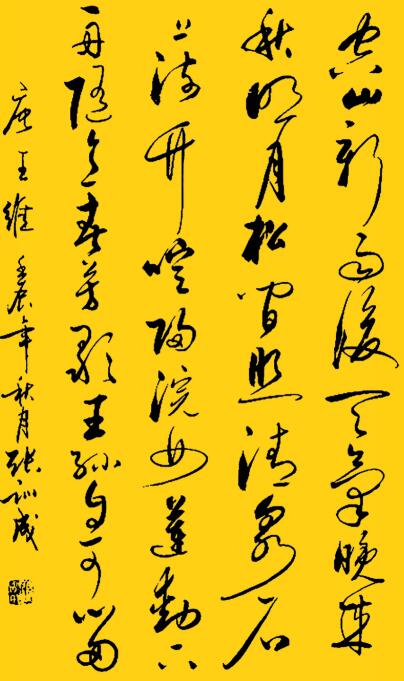 空山新雨後天氣晚來
秋明月松間照清泉石
上流竹喧歸浣女蓮動下
舟隨意春芳歇王孫自可留
唐王維 壬辰年秋月張訓成